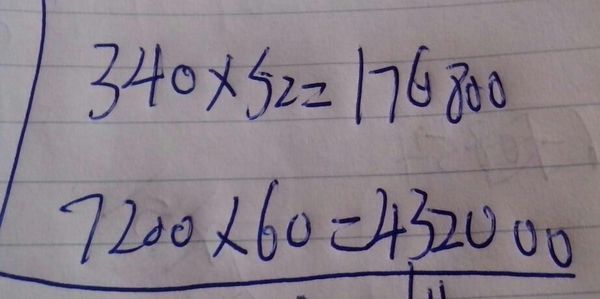 340×52=176800
7200×60=432000